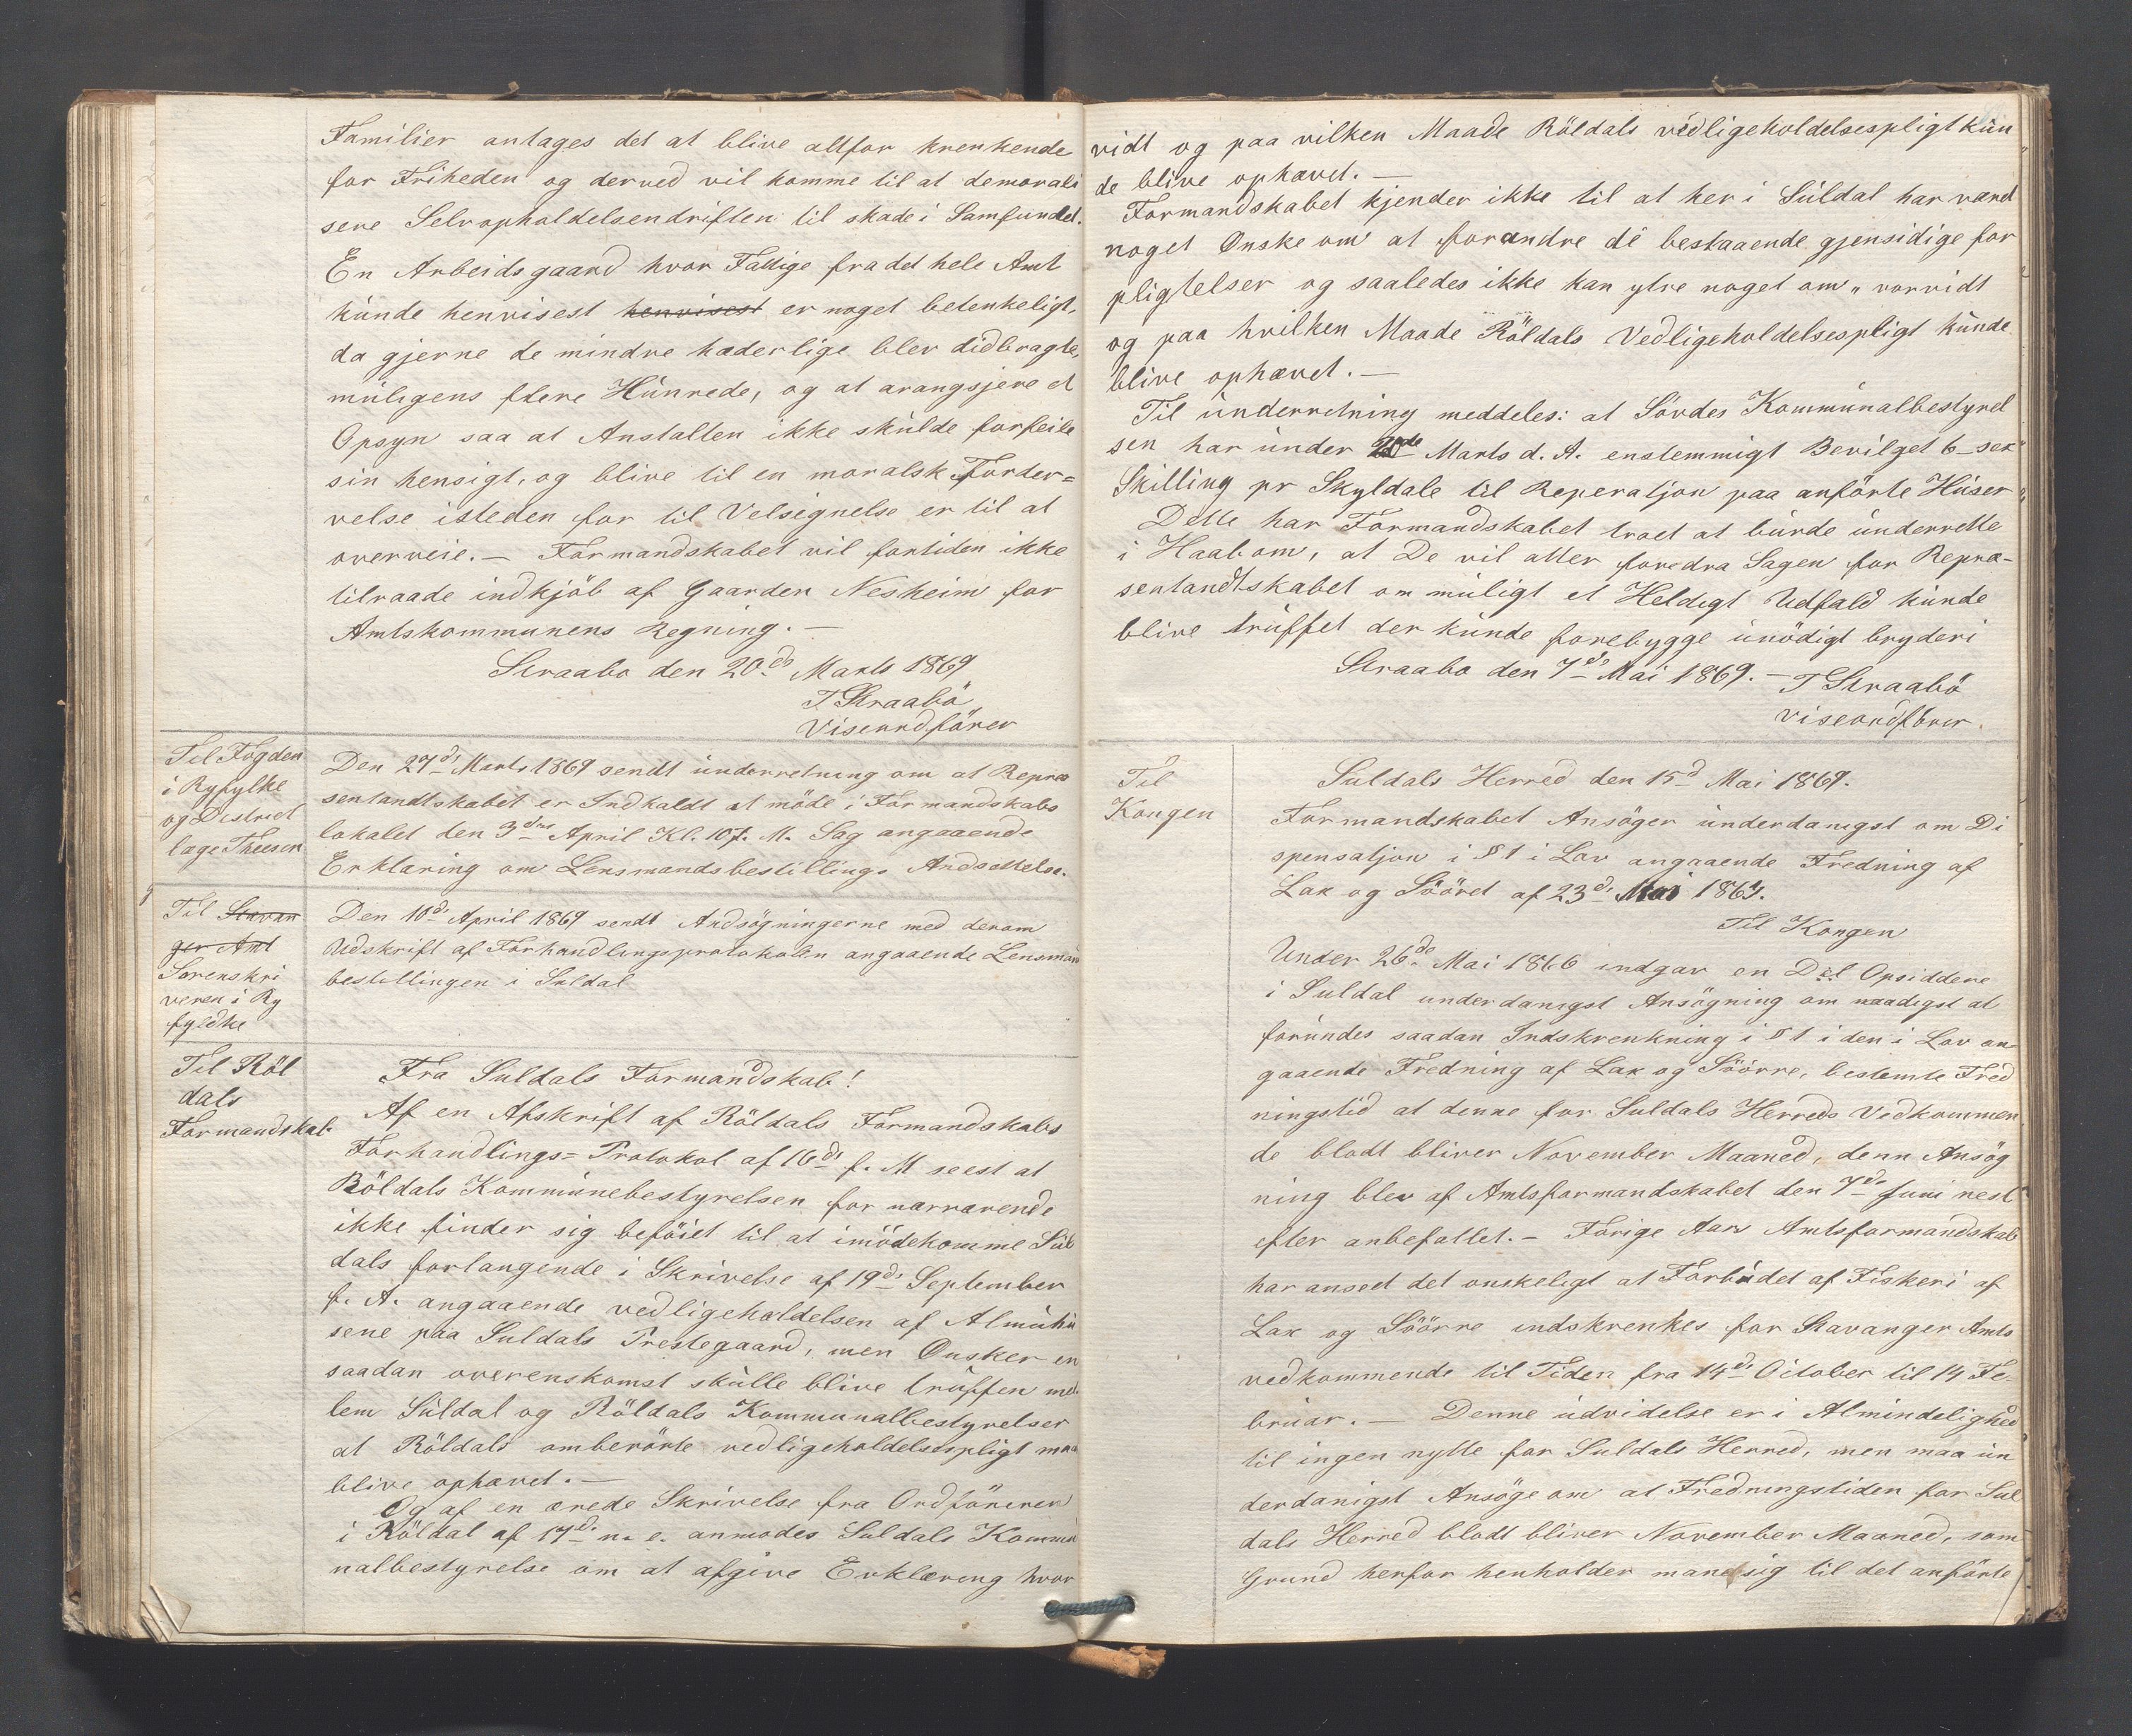 Familier antages det at blive altfor krenkende
for Friheden og derved vil komme til at demorali
sere Selvopholdelsendriften til skade i Samfundet.
En Arbeidsgaard hvor Fattige fra det hele Amt
kunde henvisest henvisest er noget betenkeligt,
da gjerne de mindre hæderlige blev didbragte,
muligens flere Hünrede, og at arangsjere et
Opsyn saa at Anstalten ikke skulde forfeile
sin hensigt, og blive til en moralsk Forder=
velse isteden for til Velsignelse er til at
overveie. — Formandskabet vil fortiden ikke
tilraade indkjöb af Gaarden Nesheim for
Amtskommunens Regning. —
Straabø den 20de Marts 1869
T Straabö
Viseordförer
Til Fogden
i Ryfylke
og District
læge Theesen
Den 27de Marts 1869 sendt underretning om at Repræ
sentandtskabet er Indkaldt at möde i Formandskabs
lokalet den 3die April Kl. 10 f. M. Sag angaaende
Erklaring om Lensmandsbestillings Andsettelse.
Til Stavan
ger Amt
Sorenskri
veren i Ry
fyldke
Den 10de April 1869 sendt Andsögningerne med derom
Udskrift af Forhandlingsprotokolen angaaende Lensmand
bestillingen i Suldal
Til Röl
dals
Formandskab
Fra Suldals Formandskab!
Af en Afskrift af Röldals Formandskabs
Forhandlings=Protokol af 16de f. M seest at
Röldals Kommünebestyrelsen for nærværende
ikke finder sig beföiet til at imödekomme Sul
dals forlangende i Skrivelse af 19de September
f. A. angaaende vedligeholdelsen af Almuhu
sene paa Suldals Prestegaard, men Önsker en
saadan overenskomst skulle blive truffen mel
lem Suldal og Röldals Kommunalbestyrelser
at Röldals omberörte vedligeholdelsespligt maa
blive ophævet. —
Og af en ærede Skrivelse fra Ordföreren
i Röldal af 17de n. e. anmodes Suldals Kommu
nalbestyrelse om at afgive Erklæring hvor
vidt og paa vilken Maade Röldals vedligeholdelsespligt kun
de blive ophævet. —
Formandskabet kjender ikke til at her i Suldal har værd
noget Onske om at forandre de bestaaende gjensidige for
pligtelser og saaledes ikke kan ytre noget om „vorvidt
og paa hvilken Maade Röldals Vedligeholdelsespligt kunde
blive ophævet. —
Til underretning meddeles: at Sövdes Kommunalbestyrel
sen har under 20de Marts d. A. enstemmigt Bevilget 6 sex
Skilling pr Skyldale til Reperatjon paa anförte Huser
Dette har Formandskabet troet at burde underrette
i Haab om, at De vil atter foredra Sagen for Repræ-
sentandtskabet om muligt et Heldigt Udfald kunde
blive truffet der kunde forebygge unödigt bryderi
Straabø den 7de Mai 1869. — T Straabö
viseordförer.
Til
Kongen
Suldals Herred den 15d Mai 1869.
Formandskabet Ansöger underdanigst om Di
spensatjon i § 1 i Lov angaaende Fredning af
Lax og Söörret af 23de Mai 1863.
Til Kongen
Under 26de Mai 1866 indgav en Del Opsiddere
i Suldal underdanigst Ansögning om naadigst at
forundes saadan Indskrenkning i § 1 i den i Lov an
gaaende Fredning af Lax og Söörre, bestemte Fred
ningstid at denne for Suldals Herreds Vedkommen
de blodt bliver November Maaned, denn Ansög
ning blev af Amtsformandskabet den 7de Juni nest
efter anbefallet. — Forige Aars Amtsformandskab
har anseet det onskeligt at Forbudet af Fiskeri af
Lax og Söörre indskrenkes for Stavanger Amts
vedkommende til Tiden fra 14de October til 14 Fe-
bruar. — Denne udvidelse er i Almindelighed
til ingen nytte for Suldals Herred, men maa un
derdanigst Ansöge om at Fredningstiden for Sul
dals Herred blodt bliver November Maaned, som
Grund herfor henholder man sig til det anförte